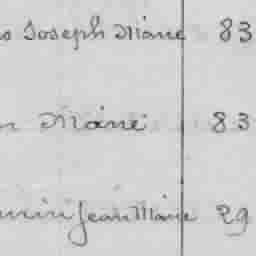 Joseph Marie 83
Marie 83
Jean Marie 29